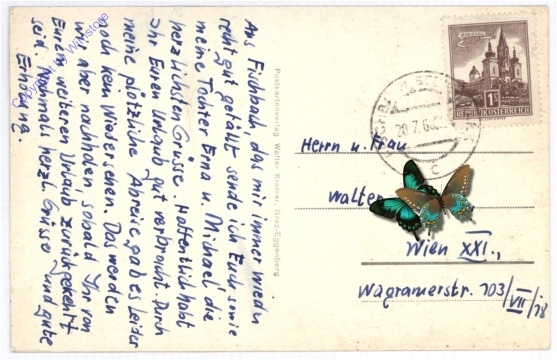 Aus Fischbach, das mir immer wieder
recht gut gefällt sende ich Euch sowie
meine Tochter Erna u. Michael die
herzlichsten Grüsse. Hoffentlich habt
Ihr Euren Urlaub gut verbracht. Durch
meine plötzliche Abreise gab es leider
noch kein Wiedersehen. Das werden
wir aber nachholen, sobald Ihr von
Eurem weiteren Urlaub zurückgekehrt
seid. Nochmals herzl. Grüsse und gute
Erholung.
Postkartenverlag Walter Kramer, Graz-Eggenberg
1S
REPUBLIK ÖSTERREICH
20.7.6
Herrn u. Frau
Walter
Wien XXI.,
Wagramerstr. 103/VII/18